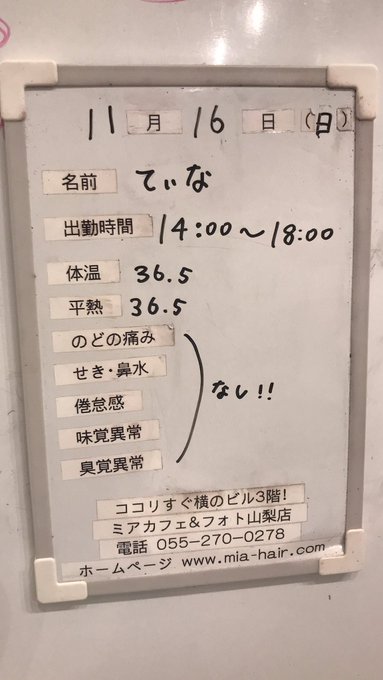 11月16日(日)
名前 てぃな
出勤時間 14:00〜18:00
体温 36.5
平熱 36.5
のどの痛み
せき・鼻水
倦怠感
なし!!
味覚異常
臭覚異常
ココリすぐ横のビル3階!
ミアカフェ&フォト山梨店
電話 055-270-0278
ホームページ www.mia-hair.com